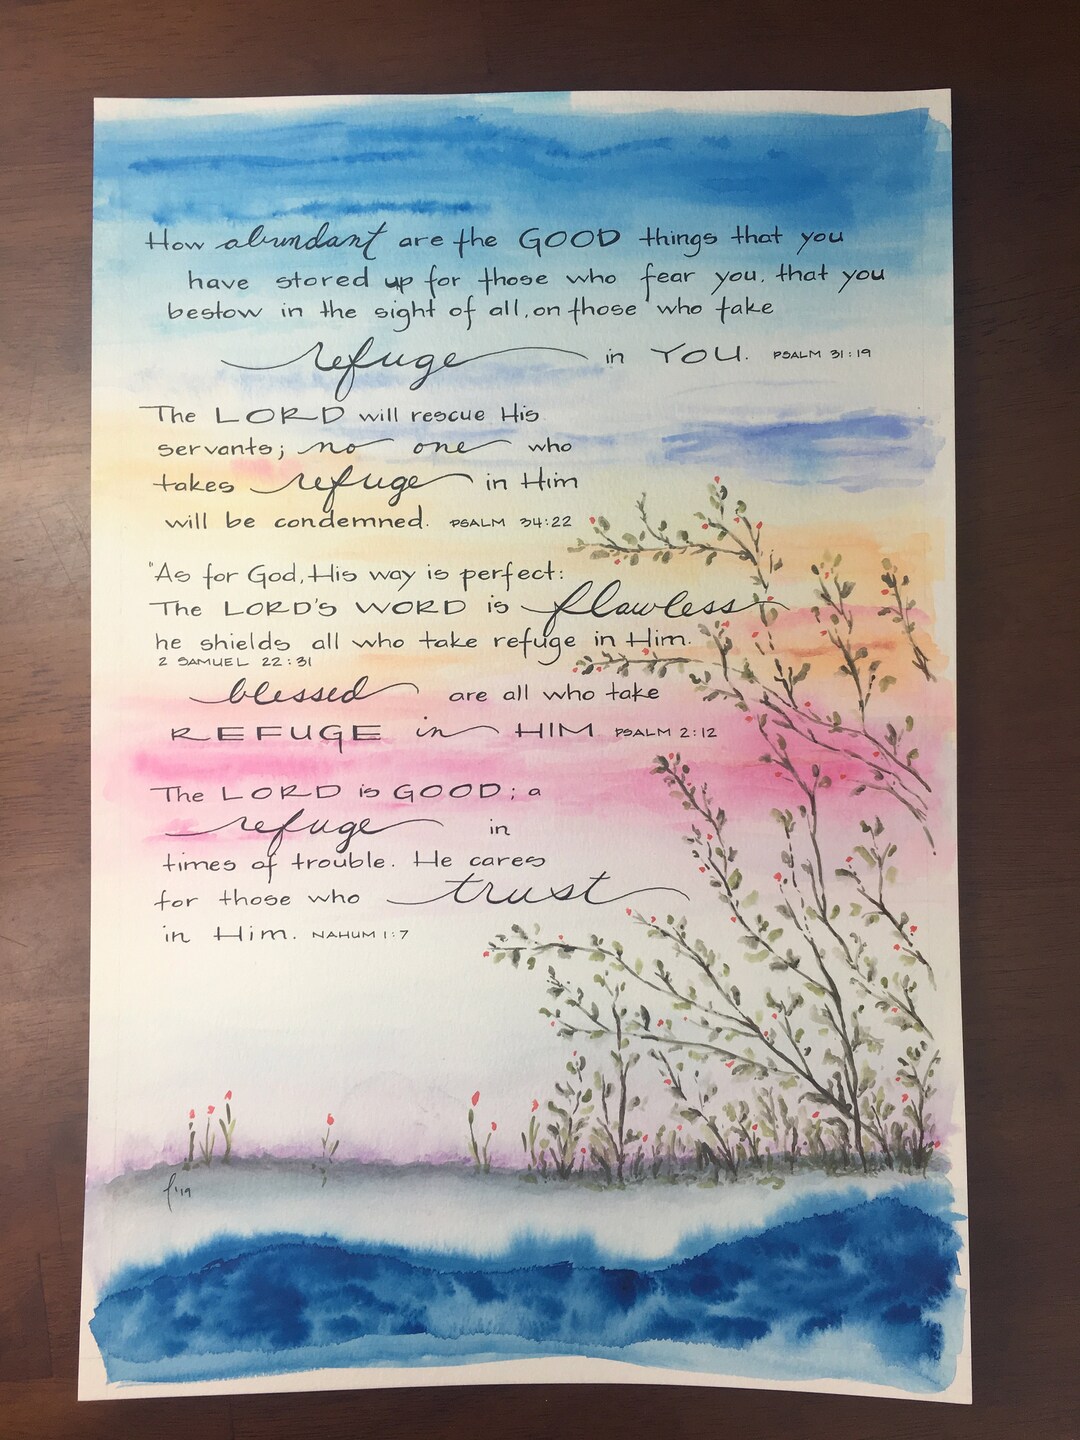 How abundant are the GOOD things that you
have stored up for those who fear you, that you
bestow in the sight of all, on those who take
refuge in YOU. PSALM 31:19
The LORD will rescue His
servants; no one who
takes refuge in Him
will be condemned. PSALM 34:22
"As for God, His way is perfect:
The LORD'S WORD is flawless
he shields all who take refuge in Him.
2 SAMUEL 22:31
blessed are all who take
REFUGE in HIM PSALM 2:12
The LORD is GOOD; a
refuge in
times of trouble. He cares
for those who trust
in Him. NAHUM 1:7
'19